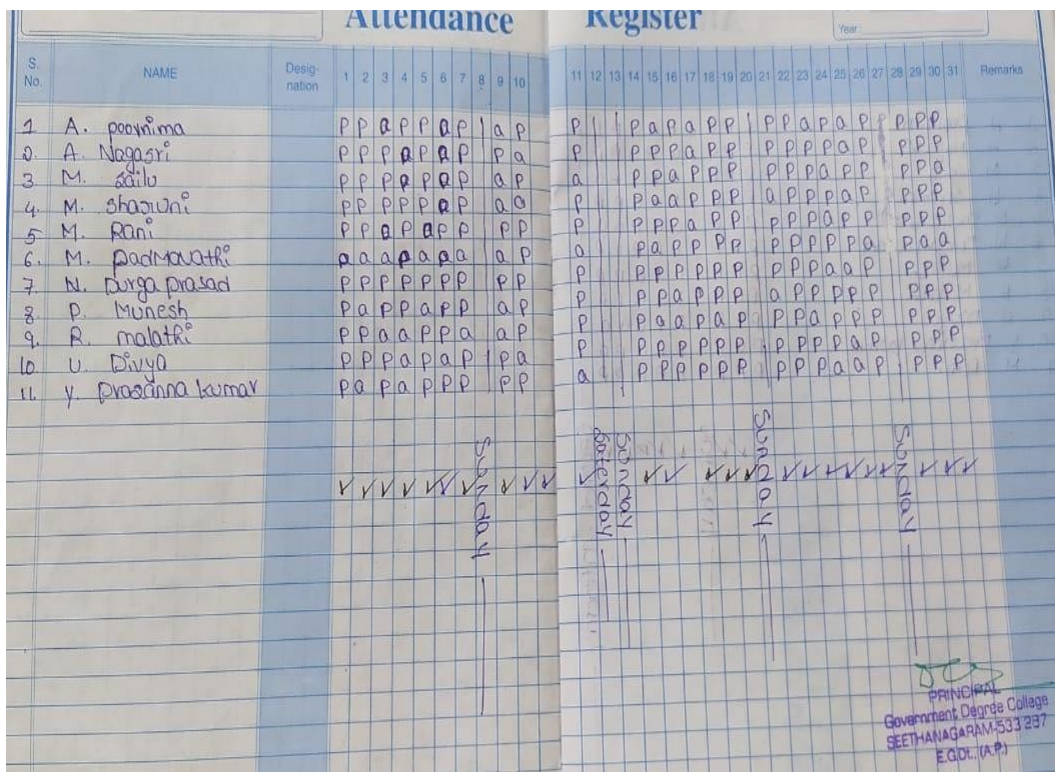 Attendance Register
Year:
S. No. NAME Desig- nation 1 2 3 4 5 6 7 8 9 10 11 12 13 14 15 16 17 18 19 20 21 22 23 24 25 26 27 28 29 30 31 Remarks
1 A. poornima P P a P P a P a P P P a P a P P P P a P a P P P P
2. A. Nagasri P P P a P a P P a P P P P a P P P P P P a P P P P
3 M. sailu P P P a P a P a P a P P a P P P P P P a P P P P a
4. M. sharuni P P P P P a P a a P P a a P P P a P P a P P P P
5 M. Rani P P a P a P P P P P P P P a P P P P P a P P P P P
6. M. padmavathi a a a P a a a a P a P a P P P P P P P P P a P a a
7 N. Durga prasad P P P P P P P P P P P P P P P P P P P a a P P P P
8 P. Munesh P a P P a P P a P P P P a P P P a P P P P P P P P
9. R. malathi P P a a P P a a P P P a a P a P P P a P P P P P P
10 U. Divya P P P a P a P P a P P P P P P P P P P P a P P P P
11. Y. prasanna kumar P a P a P P P P P a P P P P P P P P P a a P P P P
Sunday
Saterday
Sunday
Sunday
Sunday
PRINCIPAL
Government Degree College
SEETHANAGARAM-533 287
E.G.Dt. (A.P.)